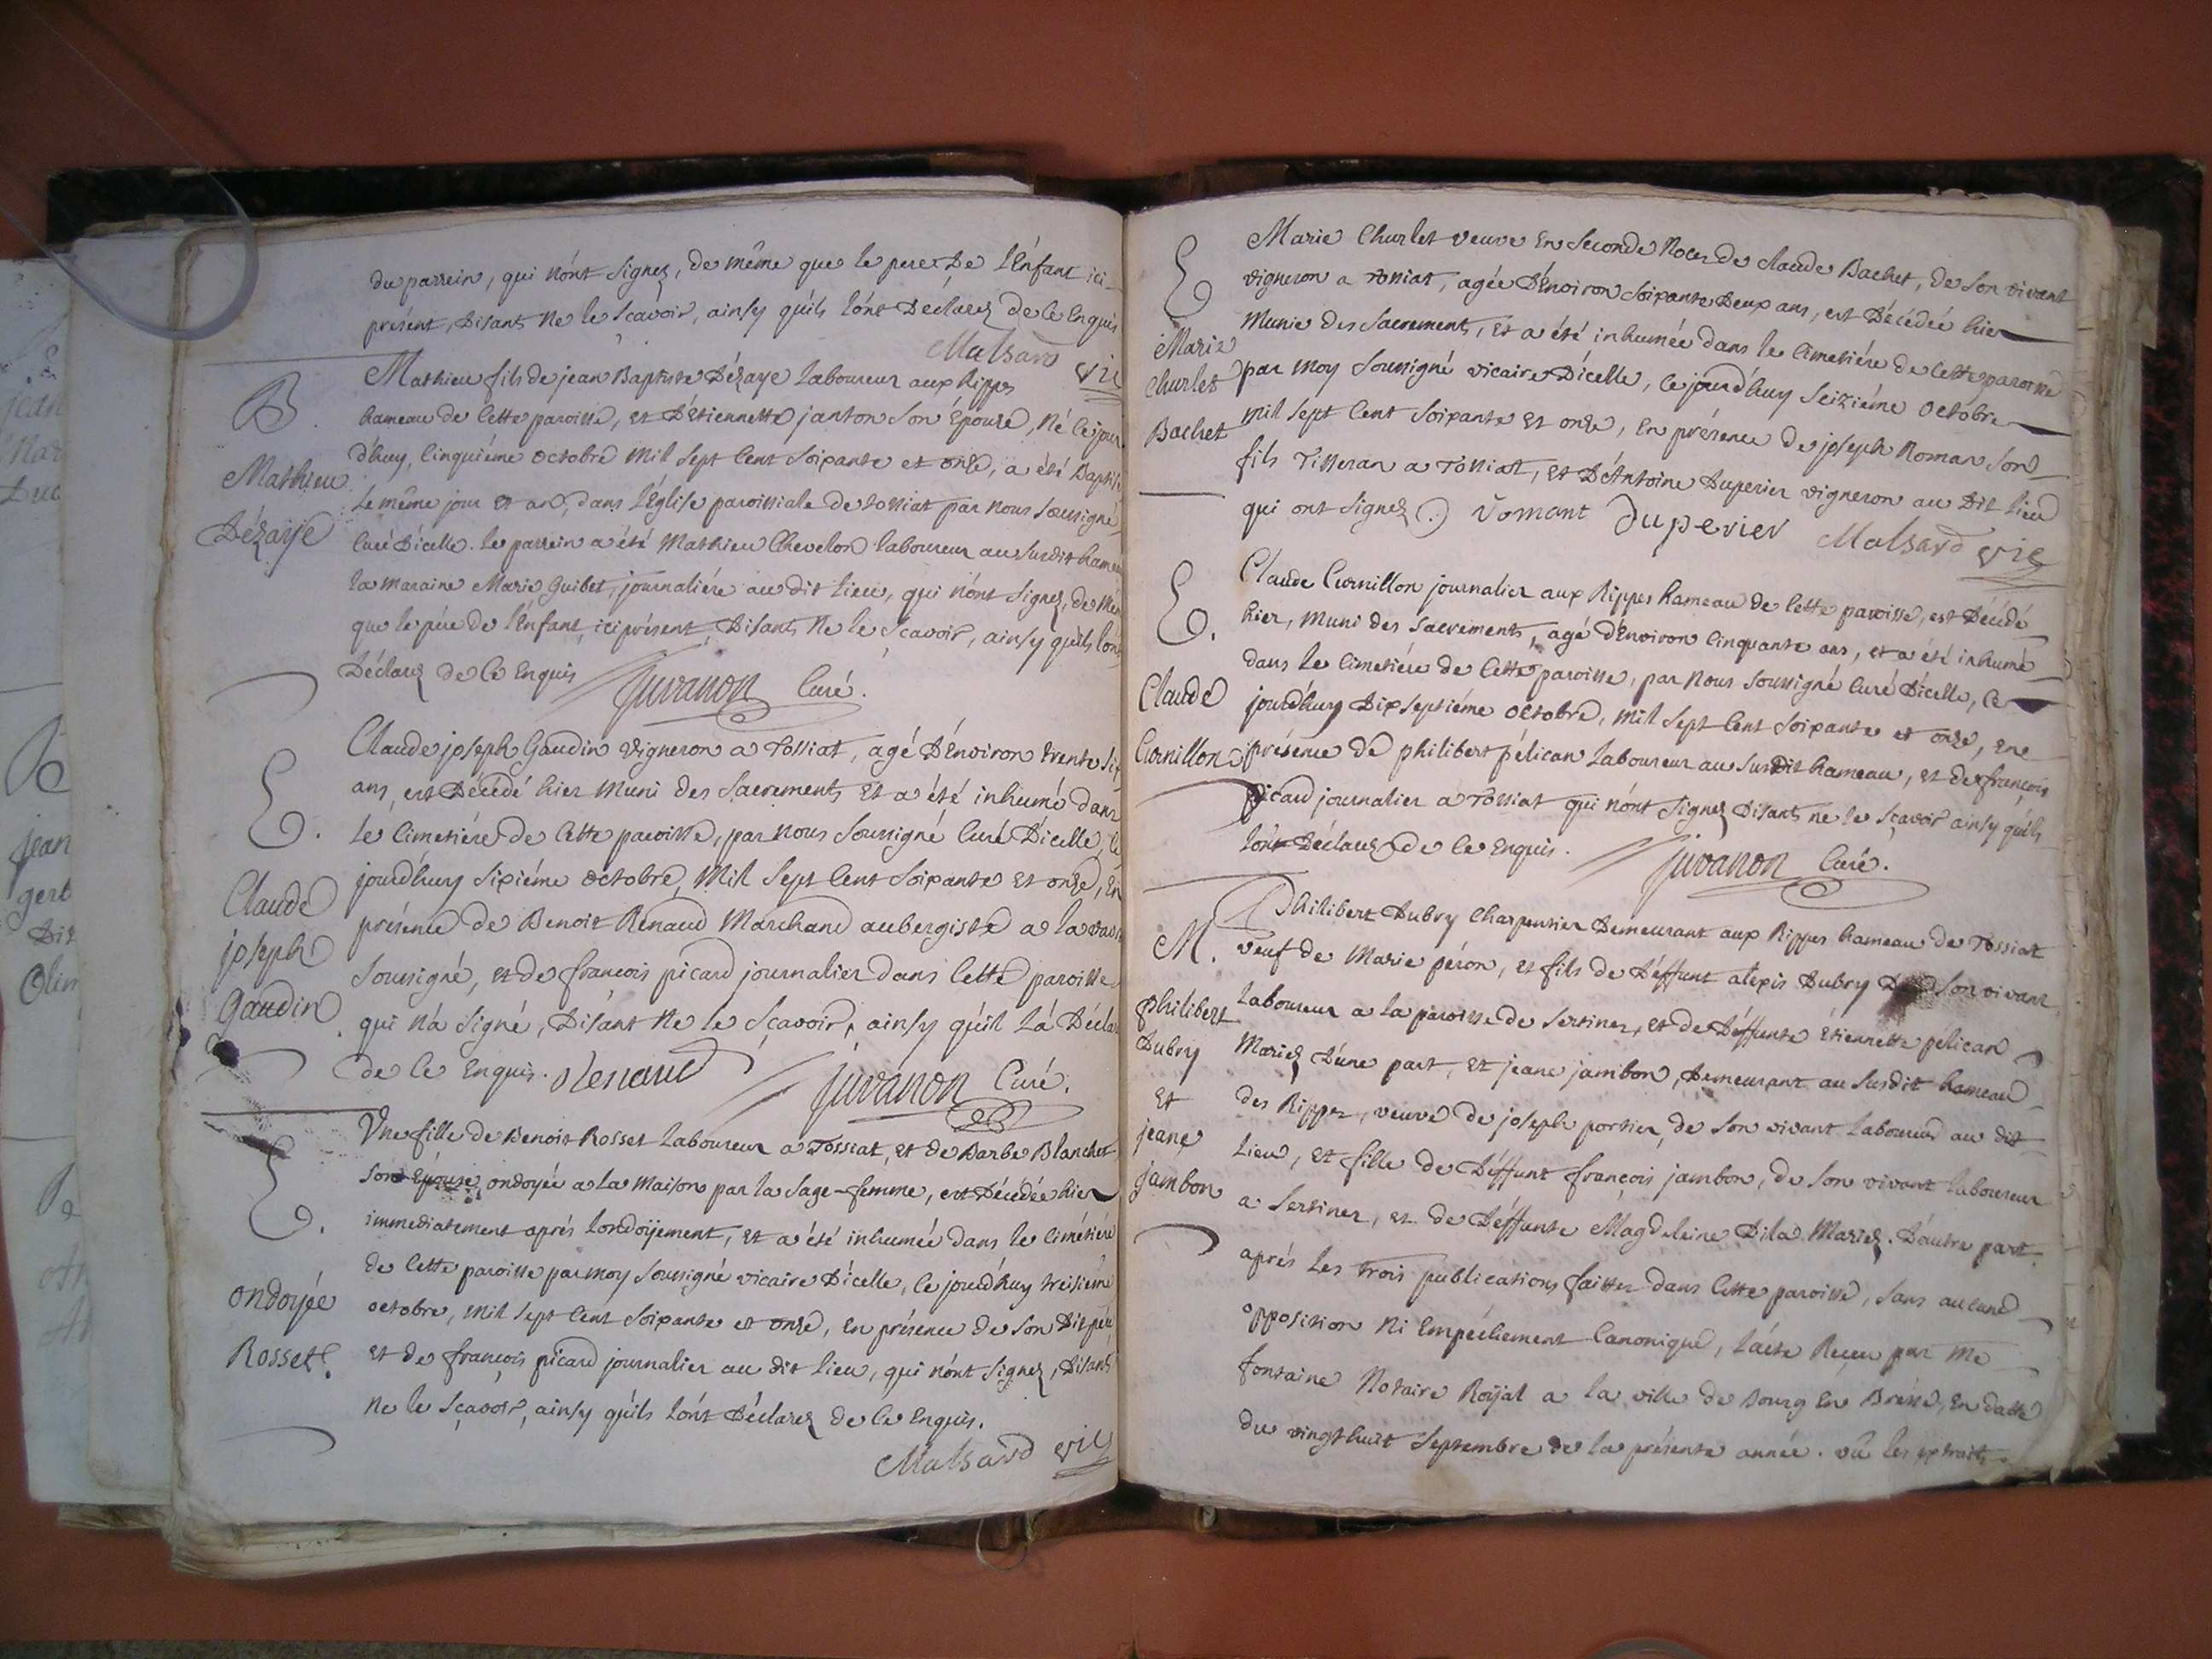 du parrein, qui nónt signez, de même que le pere De lÉnfant ici-
présent, Disants Ne le Scavoir, ainsy qúils lónt Déclarez de ce Enquis
Malsard vic
B.
Mathieu
Dézaye
Mathieu fils de jean Baptiste Dézaye Laboureur aux Rippes
hameau de cette paroisse, et D'Etiennette janton Son Épouse, Né ce jour
d'huy, cinquiéme octobre mil sept cent soixante et onze, a été Baptisé
le même jour et an, dans l'église paroissiale de tossiat par nous soussigné
curé Dicelle. le parrein a été Mathieu Chevelon laboureur au susdit hameau
la maraine Marie Guibet, journaliére au dit lieu, qui nónt signez, de Même
que le pére de lÉnfant, ici présent, Disants Ne le Sçavoir, ainsy qúils lónt
Déclarez de ce Enquis Juvanon Curé.
E.
Claude
joseph
Gaudin
Claude joseph Gaudin Vigneron a Tossiat, agé D'Environ trente six
ans, est Décédé hier Muni des Sacrements Et a été inhumé dans
le Cimetiére de Cette paroisse, par nous Soussigné Curé Dicelle, ce
jourd'huy sixiéme octobre, Mil Sept Cent Soixante et onze, En
présence de Benoit Renaud Marchand aubergiste a la
Soussigné, et de francois picard journalier dans Cette paroisse
qui n'a signé, Disant Ne le Sçavoir, ainsy qúil lá Déclaré
de ce Enquis. Renaud Juvanon Curé.
E.
ondoyée
Rosset.
Une fille de Benoit Rosset Laboureur a Tossiat, et de Barbe Blanchet
Son Epouse, ondoyée a la Maison par la Sage-femme, est Décedée hier
immediatement aprés londoyement, et a été inhumée dans le cimétiére
de Cette paroisse par moy soussigné vicaire Dicelle, Ce jourd'huy treisiéme
octobre, mil sept cent soixante et onze, en présence de Son Dit pére
et de francois picard journalier au dit lieu, qui nónt signez, Disants
Ne le Sçavoir, ainsy qúils lónt Déclarez de ce Enquis.
Malsard vic
E
Marie
Churlet
Bachet
Marie Churlet veuve En Seconde Noces de claude Bachet, de Son vivant
vigneron a tossiat, agée D'Environ soixante Deux ans, est Décédeé hier
Munie des Sacrements, et a été inhumée dans le Cimetiére de Cette paroisse
par Moy Soussigné vicaire Dicelle, ce jourd'huy Seiziéme Octobre
mil Sept Cent Soixante et onze, En présence de joseph Roman Son
fils Tisseran a Tossiat, et D'Antoine Duperier vigneron au Dit lieu
qui ont signez (.) Romant Duperier Malsard vic
E.
Claude
Cornillon
Claude Curnillon journalier aux Rippes hameau de Cette paroisse, est Décédé
hier, Muni des Sacrements, agé d'Environ Cinquante ans, et a été inhumé
dans le Cimetiére de Cette paroisse, par Nous Soussigné Curé Dicelle, Ce
jourd'huy Dix septiéme octobre, mil Sept Cent Soixante et onze, en
présence de philibert pélican Laboureur au Susdit hameau, et de francois
picard journalier a Tossiat qui nónt signez Disants ne le Sçavoir ainsy qúils
lónt Déclarez de Ce Enquis. Juvanon Curé.
M.
philibert
Dubry
Et
jeane
jambon
Philibert Dubry Charpentier Demeurant aux Rippes hameau de Tossiat
veuf de Marie péron, et fils de Déffunt alexis Dubry De Son vivant
Laboureur a la paroisse de Sertines, et de Déffunte Étiennette pélican
Mariez D'une part, et jeane jambon, Demeurant au susdit hameau
des Rippes, veuve de joseph portier, de Son vivant Laboureur au dit
Lieu, et fille de Déffunt françois jambon, de Son vivant laboureur
a Sertines, et de Déffunte Magdeleine Dila Mariez. D'autre part
aprés les trois publications faittes dans Cette paroisse, Sans aucune
opposition Ni Empéchement Canonique, l'acte Reçeu par Me
fontaine Notaire Royal a la ville de Bourg En Bresse, En datte
du vingt huit Septembre de la présente année. vû les extraits